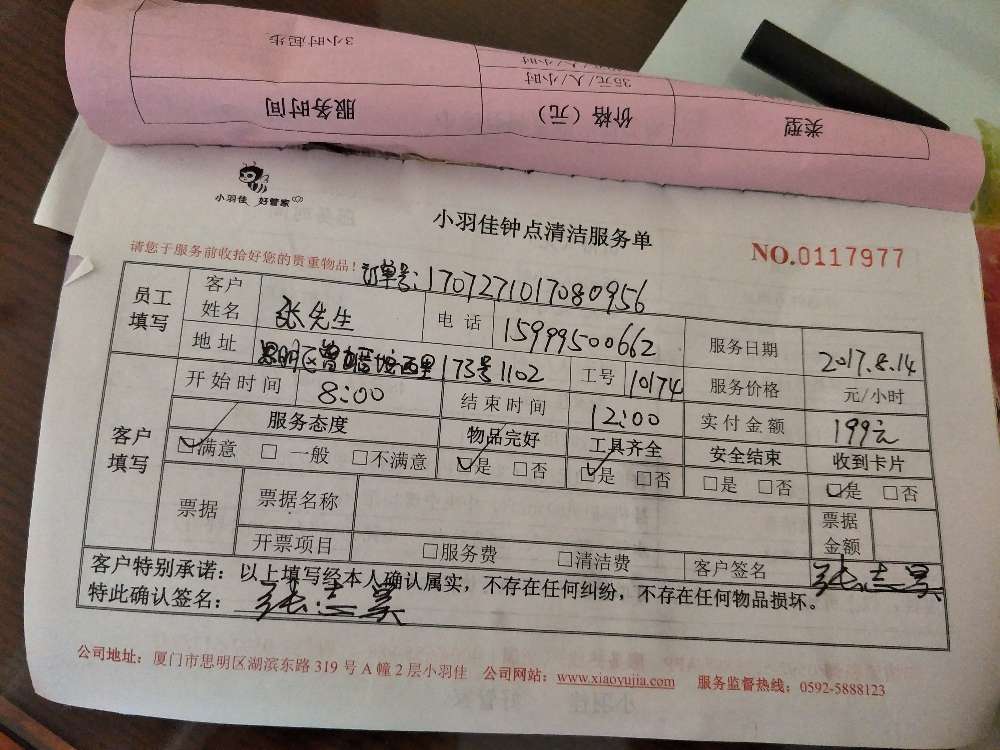 3小时起步
35元/人/小时
服务时间 价格(元) 类型
小羽佳 好管家
小羽佳钟点清洁服务单
NO.0117977
请您于服务前收拾好您的贵重物品!
订单号:170727101708095​6
员工填写 客户姓名 张先生 电话 15999500662 服务日期 2017.8.14
地址 思明区曾厝垵西里173号1102 工号 10174 服务价格 元/小时
客户填写 开始时间 8:00 结束时间 12:00 实付金额 199元
服务态度 物品完好 工具齐全 安全结束 收到卡片
☑满意 □一般 □不满意 ☑是 □否 ☑是 □否 □是 □否 ☑是 □否
票据 票据名称 票据金额
开票项目 □服务费 □清洁费 客户签名 张志昊
客户特别承诺:以上填写经本人确认属实,不存在任何纠纷,不存在任何物品损坏。
特此确认签名:张志昊
公司地址:厦门市思明区湖滨东路319号A幢2层小羽佳 公司网站:www.xiaoyujia.com 服务监督热线:0592-5888123